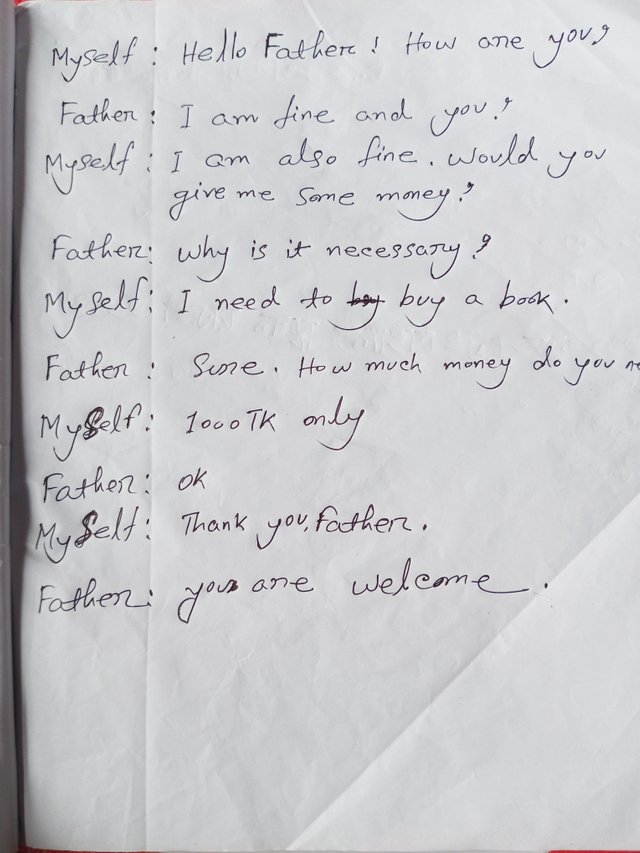 Myself : Hello Father! How are you?
Father : I am fine and you?
Myself : I am also fine. Would you
give me some money?
Father : why is it necessary?
Myself : I need to buy a book.
Father : Sure. How much money do you
Myself : 1000TK only
Father : OK
Myself : Thank you, Father.
Father : you are welcome.